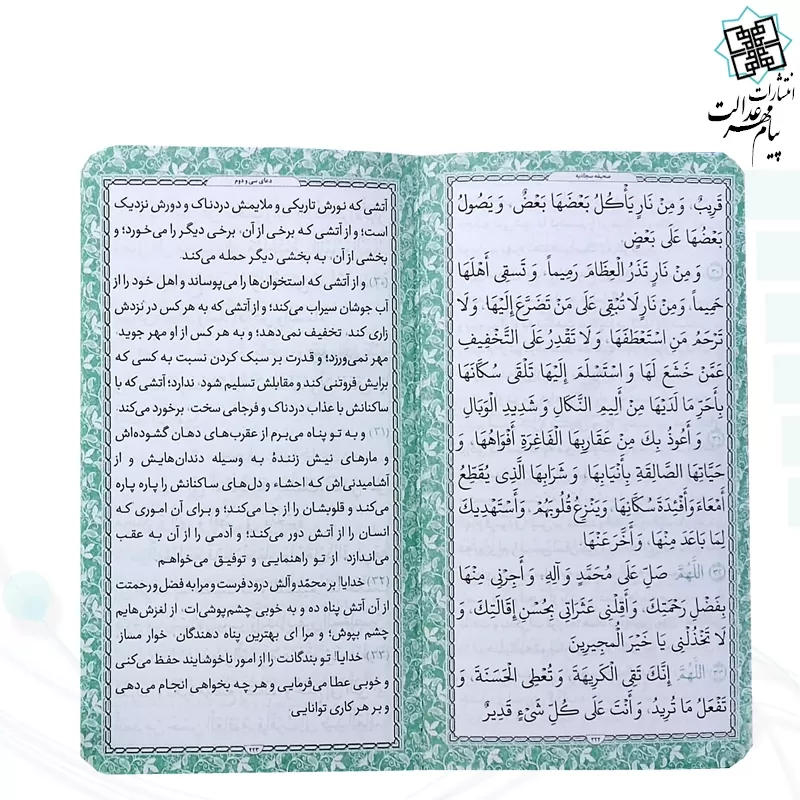 انتشارات
پیام مهر عدالت
صحیفه سجادیه
قَرِيبٌ، وَ مِنْ نَارٍ يَأْكُلُ بَعْضَهَا بَعْضٌ، وَ يَصُولُ
بَعْضُهَا عَلَى بَعْضٍ.
(۳۰) وَ مِنْ نَارٍ تَذَرُ الْعِظَامَ رَمِيماً، وَ تَسقِي أَهْلَهَا
حَمِيماً، وَ مِنْ نَارٍ لَا تُبْقِي عَلَى مَنْ تَضَرَّعَ إِلَيْهَا، وَ لَا
تَرْحَمُ مَنِ اسْتَعْطَفَهَا، وَ لَا تَقْدِرُ عَلَى التَّخْفِيفِ
عَمَّنْ خَشَعَ لَهَا وَ اسْتَسْلَمَ إِلَيْهَا تَلْقَى سُكَّانَهَا
بِأَحَرِّ مَا لَدَيْهَا مِنْ أَلِيمِ النَّكَالِ وَ شَدِيدِ الْوَبَالِ
(۳۱) وَ أَعُوذُ بِكَ مِنْ عَقَارِبِهَا الْفَاغِرَةِ أَفْوَاهُهَا، وَ
حَيَّاتِهَا الصَّالِقَةِ بِأَنْيَابِهَا، وَ شَرَابِهَا الَّذِي يُقَطِّعُ
أَمْعَاءَ وَ أَفْئِدَةَ سُكَّانِهَا، وَ يَنْزِعُ قُلُوبَهُمْ، وَ أَسْتَهْدِيكَ
لِمَا بَاعَدَ مِنْهَا، وَ أَخَّرَ عَنْهَا.
(۳۲) اللَّهُمَّ، صَلِّ عَلَى مُحَمَّدٍ وَ آلِهِ، وَ أَجِرْنِي مِنْهَا
بِفَضْلِ رَحْمَتِكَ، وَ أَقِلْنِي عَثَرَاتِي بِحُسْنِ إِقَالَتِكَ، وَ
لَا تَخْذُلْنِي يَا خَيْرَ الْمُجِيرِينَ
(۳۳) اللَّهُمَّ، إِنَّكَ تَقِي الْكَرِيهَةَ، وَ تُعْطِي الْحَسَنَةَ، وَ
تَفْعَلُ مَا تُرِيدُ، وَ أَنْتَ عَلَى كُلِّ شَيْءٍ قَدِيرٌ
۲۲۲
دعای سی و دوم
آتشی که نورش تاریکی و ملایمش دردناک و دورش نزدیک
است؛ و از آتشی که برخی از آن، برخی دیگر را می‌خورد؛ و
بخشی از آن، به بخشی دیگر حمله می‌کند.
(۳۰) و از آتشی که استخوان‌ها را می‌پوساند و اهل خود را از
آب جوشان سیراب می‌کند؛ و از آتشی که به هر کس در نزدش
زاری کند، تخفیف نمی‌دهد؛ و به هر کس از او مهر جوید،
مهر نمی‌ورزد؛ و قدرت بر سبک کردن نسبت به کسی که
برایش فروتنی کند و مقابلش تسلیم شود، ندارد؛ آتشی که با
ساکنانش با عذاب دردناک و فرجامی سخت، برخورد می‌کند.
(۳۱) و به تو پناه می‌برم از عقرب‌های دهان گشوده‌اش
و مارهای نیش زنندهٔ به وسیله دندان‌هایش و از
آشامیدنی‌اش که احشاء و دل‌های ساکنانش را پاره پاره
می‌کند و قلوبشان را از جا می‌کند؛ و برای آن اموری که
انسان را از آتش دور می‌کند؛ و آدمی را از آن به عقب
می‌اندازد، از تو راهنمایی و توفیق می‌خواهم.
(۳۲) خدایا! بر محمّد و آلش درود فرست و مرا به فضل و رحمتت
از آن آتش پناه ده و به خوبی چشم‌پوشی‌ات، از لغزش‌هایم
چشم بپوش؛ و مرا ای بهترین پناه دهندگان، خوار مساز.
(۳۳) خدایا! تو بندگانت را از امور ناخوشایند حفظ می‌کنی
و خوبی عطا می‌فرمایی و هر چه بخواهی انجام می‌دهی
و بر هر کاری توانایی.
۲۲۳